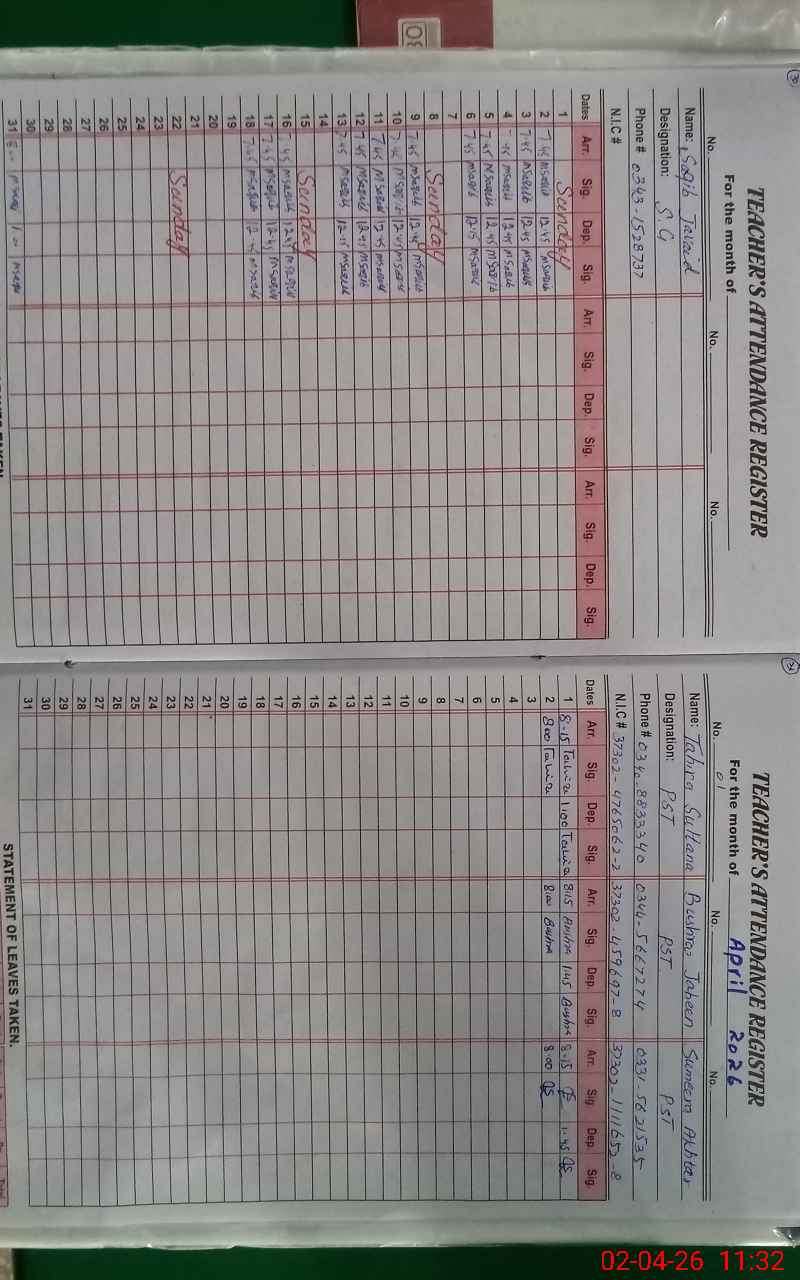 30
TEACHER'S ATTENDANCE REGISTER
For the month of
No. No. No.
Name: Saqib Javaid
Designation: S.G
Phone # 0343-1528737
N.I.C #
Dates Arr. Sig. Dep. Sig. Arr. Sig. Dep. Sig. Arr. Sig. Dep. Sig.
1 Sunday
2 7.45 msaqib 12.45 msaqib
3 7.45 msaqib 12.45 msaqib
4 7.45 msaqib 12.45 msaqib
5 7.45 msaqib 12.45 msaqib
6 7.45 msaqib 12.15 msaqib
7
8 Sunday
9 7.45 msaqib 12.45 msaqib
10 7.45 msaqib 12.45 msaqib
11 7.45 msaqib 12.45 msaqib
12 7.45 msaqib 12.45 msaqib
13 7.45 msaqib 12.15 msaqib
14
15 Sunday
16 7.45 msaqib 12.45 msaqib
17 7.45 msaqib 12.45 msaqib
18 7.45 msaqib 12.45 msaqib
19
20
21
22 Sunday
23
24
25
26
27
28
29
30
31 8.00 msaqib 1.00 msaqib
31
TEACHER'S ATTENDANCE REGISTER
For the month of April 2026
No. 01 No. No.
Name: Tahira Sultana Bushra Jabeen Sumeera Akhtar
Designation: PST PST PST
Phone # 0340-8833340 0344-5667274 0331-5621535
N.I.C # 37302-4765062-2 37302-459697-8 37302-1111652-8
Dates Arr. Sig. Dep. Sig. Arr. Sig. Dep. Sig. Arr. Sig. Dep. Sig.
1 8.15 Tahira 1.00 Tahira 8.15 Bushra 1.45 Bushra 8.15 1.45
2 8.00 Tahira 8.00 Bushra 8.00
3
4
5
6
7
8
9
10
11
12
13
14
15
16
17
18
19
20
21
22
23
24
25
26
27
28
29
30
31
STATEMENT OF LEAVES TAKEN.
02-04-26 11:32